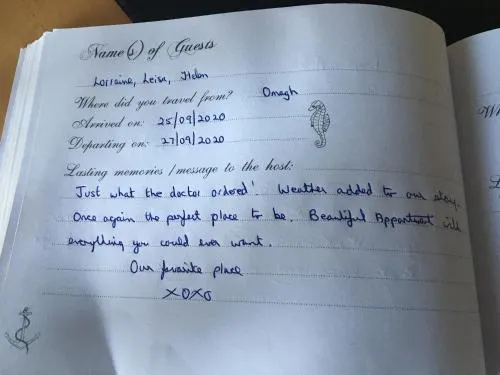 Name(s) of Guests
Lorraine, Leisa,
Where did you travel from? Omagh
Arrived on: 25/09/2020
Departing on: 27/09/2020
Lasting memories/message to the host:
Just what the doctor ordered! Weather added to our stay.
Once again the perfect place to be. Beautiful Appartment with
everything you could ever want.
Our favorite place
XOXO